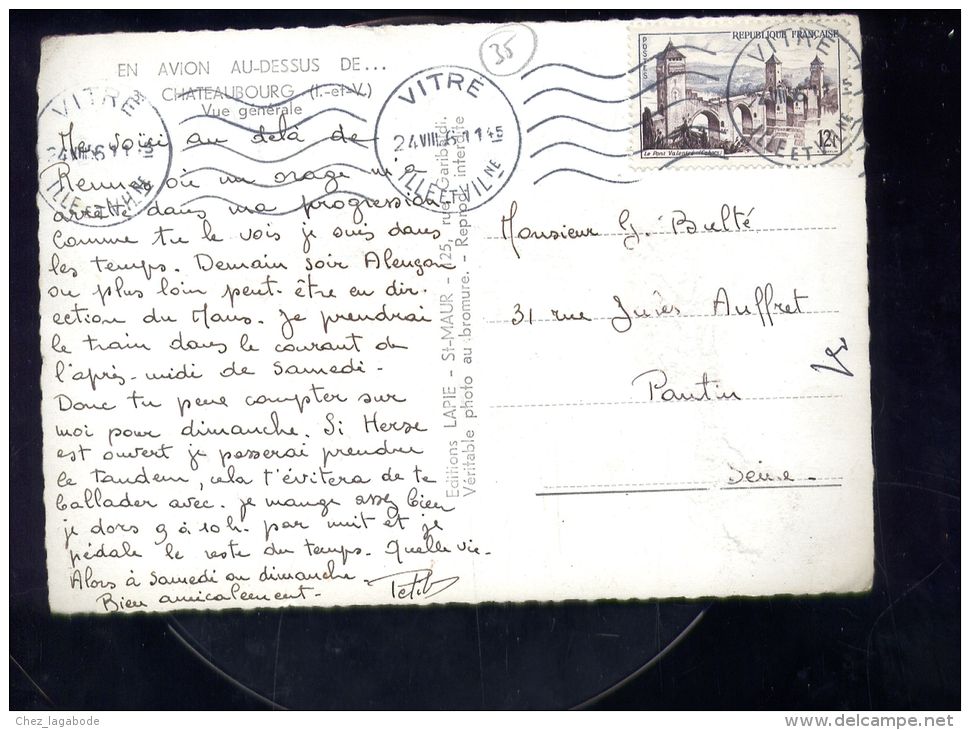 EN AVION AU-DESSUS DE...
CHATEAUBOURG (I.-et-V.)
Vue générale
35
VITRÉ
24 VIII
11 45
ILLE ET VILNE
VITRÉ
ILLE ET VILNE
VITRÉ
ILLE ET VILNE
REPUBLIQUE FRANÇAISE
POSTES
Le Pont Valentré (Cahors)
12f
Me voici au delà de
Rennes où un orage m'a
arrêté dans ma progression.
Comme tu le vois je suis dans
les temps. Demain soir Alençon
ou plus loin peut-être en dir-
ection du Mans. Je prendrai
le train dans le courant de
l'après-midi de Samedi-
Donc tu peux compter sur
moi pour dimanche. Si Herse
est ouvert je passerai prendre
le tandem, cela t'évitera de te
ballader avec. je mange assez bien
je dors 9 à 10 h. par nuit et je
pédale le reste du temps. Quelle vie.
Alors à samedi ou dimanche
Bien amicalement-
Editions LAPIE - St-MAUR - 125, rue Garibaldi.
Véritable photo au bromure. - Reprod. interdite
Monsieur G. Bulté
31 rue Jules Auffret
Pantin
Seine-
Chez_lagabode
www.delcampe.net